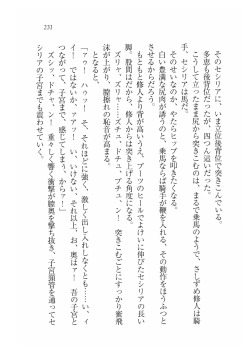 232
そのセシリアに、いま立位後背位で突きこんでいる。
多恵も後背位だったが、四つん這いだった。
こうして立ったまま尻から突きこむのは、まるで乗馬のようで、さしずめ修人は騎
手、セシリアは馬だ。
そのせいなのか、やたらヒップを叩きたくなる。
白い豊満な尻肉が誘うのと、乗馬ならば騎手が鞭を入れる、その動作をほうふつと
させるからだろう。
もともと修人より背が高いうえ、ブーツのヒールでよけいに伸びたセシリアの長い
脚、股間はだから、修人からは突き上げる角度になる。
ズリャ、ズリャ……ズチュ、ドチュ、ブチュ、ン！　突きこむごとにすっかり蜜飛
沫が上がり、膣擦れの恥音が高まる。
となると、
「ァァ！　ハゥッ！　そ、それほどに強く、激しく出し入れしなくとも……い、イ
イ！　ではないか、ァアッ！　い、いけない、それ以上、お、奥はァ！　吾の子宮と
つながって、子宮まで、感じてしまう、からァ！」
ズシッ、ドチャ、ン！　重々しく響く衝撃が膣奥を撃ち抜き、子宮頸管を通ってセ
シリアの子宮までも震わせていく。